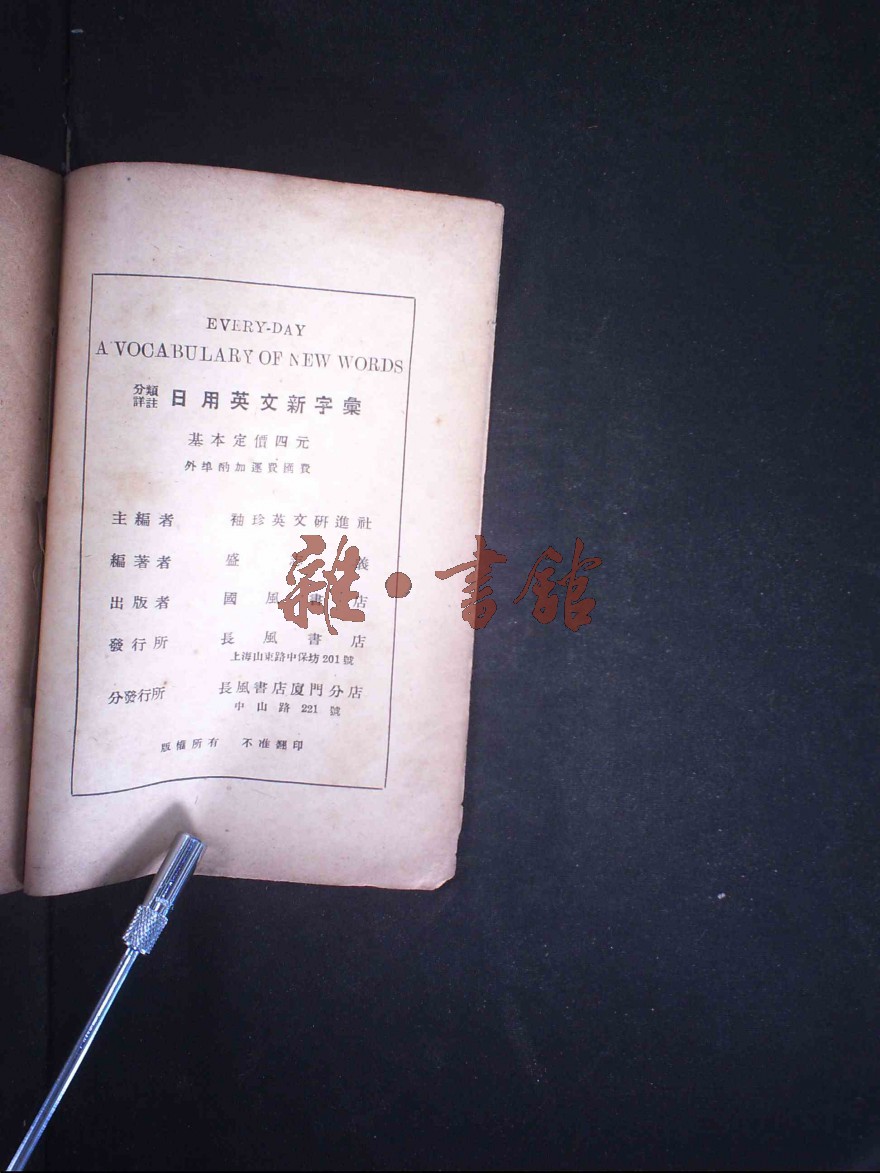 EVERY-DAY
A VOCABULARY OF NEW WORDS
分類
詳註 日用英文新字彙
基本定價四元
外埠酌加運費匯費
主編者 袖珍英文研進社
編著者 盛 義
出版者 國風書店
發行所 長風書店
上海山東路中保坊 201 號
分發行所 長風書店廈門分店
中山路 221 號
版權所有 不准翻印
雜・書館